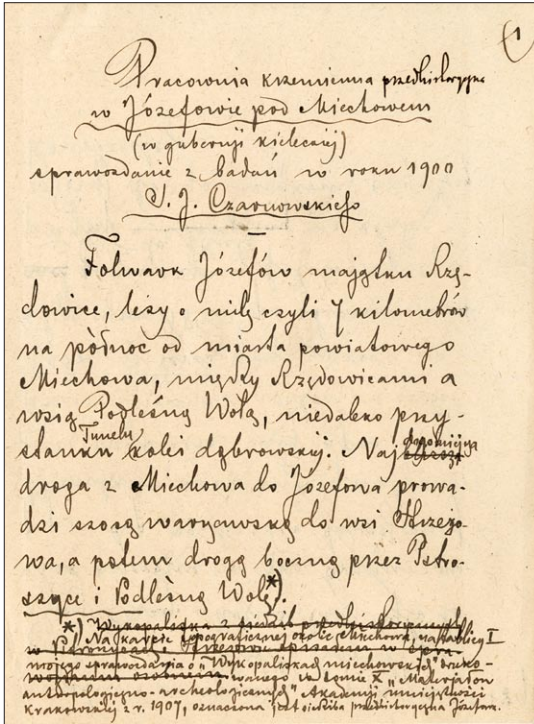 1
Pracownia krzemienna przedhistoryczna
w Józefowie pod Miechowem
(w gubernji kieleckiej)
sprawozdanie z badań w roku 1900
S. J. Czarnowskiego
Folwark Józefów majątku Rzę-
dowice, leży o milę czyli 7 kilometrów
na północ od miasta powiatowego
Miechowa, między Rzędowicami a
wsią Podleśną Wolą, niedaleko przy-
stanku Tunelu kolei dąbrowskiej. Naj dogodniejsza
droga z Miechowa do Józefowa prowa-
dzi szosą warszawską do wsi Strzeżo-
wa, a potem drogą boczną przez Pstro-
szyce i Podleśną Wolę*).
*) Wykopaliska z siedzib przedhistorycznych
w Pstroszycach
Na karcie topograficznej okolic Miechowa, na tablicy I
mojego sprawozdania o „Wykopaliskach miechowskich" druko-
wanego w tomie X „Materjałów
antropologiczno-archeologicznych" Akademji umiejętności
krakowskiej z r. 1907, oznaczona jest siedziba przedhistoryczna Józefów.